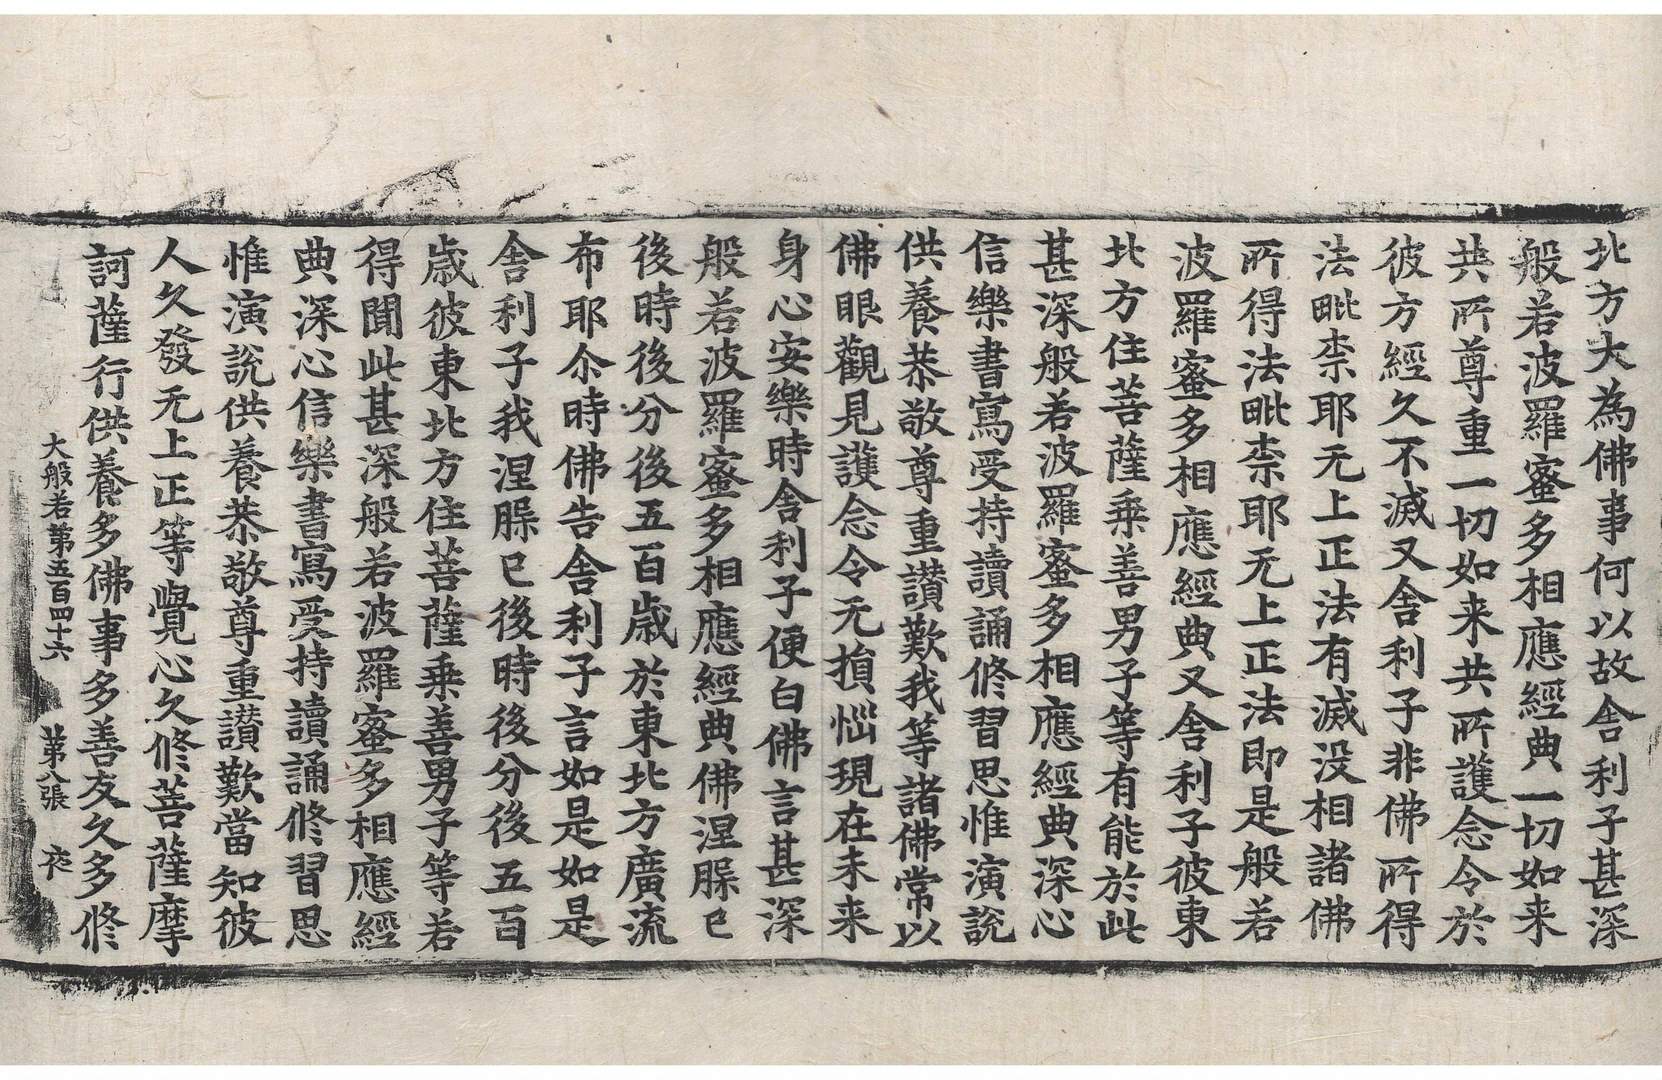 北方大為佛事何以故舍利子甚深
般若波羅蜜多相應經典一切如来
共所尊重一切如来共所護念令於
彼方經久不滅又舍利子非佛所得
法毗柰耶无上正法有滅没相諸佛
所得法毗柰耶无上正法即是般若
波羅蜜多相應經典又舍利子彼東
北方住菩薩乗善男子等有能於此
甚深般若波羅蜜多相應經典深心
信樂書寫受持讀誦修習思惟演說
供養恭敬尊重讃歎我等諸佛常以
佛眼觀見護念令无損惱現在未来
身心安樂時舍利子便白佛言甚深
般若波羅蜜多相應經典佛涅槃已
後時後分後五百歲於東北方廣流
布耶尒時佛告舍利子言如是如是
舍利子我涅槃已後時後分後五百
歲彼東北方住菩薩乗善男子等若
得聞此甚深般若波羅蜜多相應經
典深心信樂書寫受持讀誦修習思
惟演說供養恭敬尊重讃歎當知彼
人久發无上正等覺心久修菩薩摩
訶薩行供養多佛事多善友久多修
大般若第五百四十六 第八張